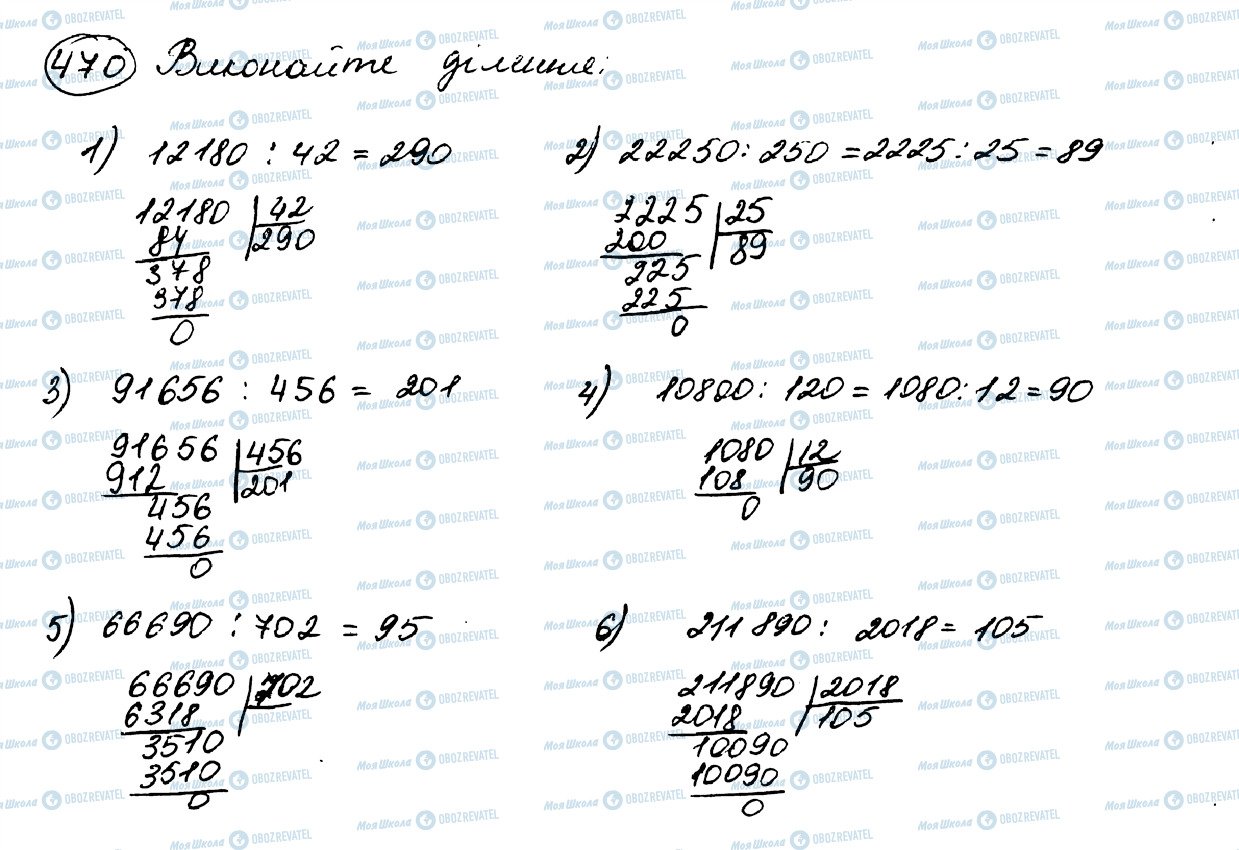 470 Виконайте ділення:
1) 12180 : 42 = 290
12180 42
84 290
378
378
0
2) 22250 : 250 = 2225 : 25 = 89
2225 25
200 89
225
225
0
3) 91656 : 456 = 201
91656 456
912 201
456
456
0
4) 10800 : 120 = 1080 : 12 = 90
1080 12
108 90
0
5) 66690 : 702 = 95
66690 702
6318
3510
3510
0
6) 211890 : 2018 = 105
211890 2018
2018 105
10090
10090
0
Моя Школа OBOZREVATEL